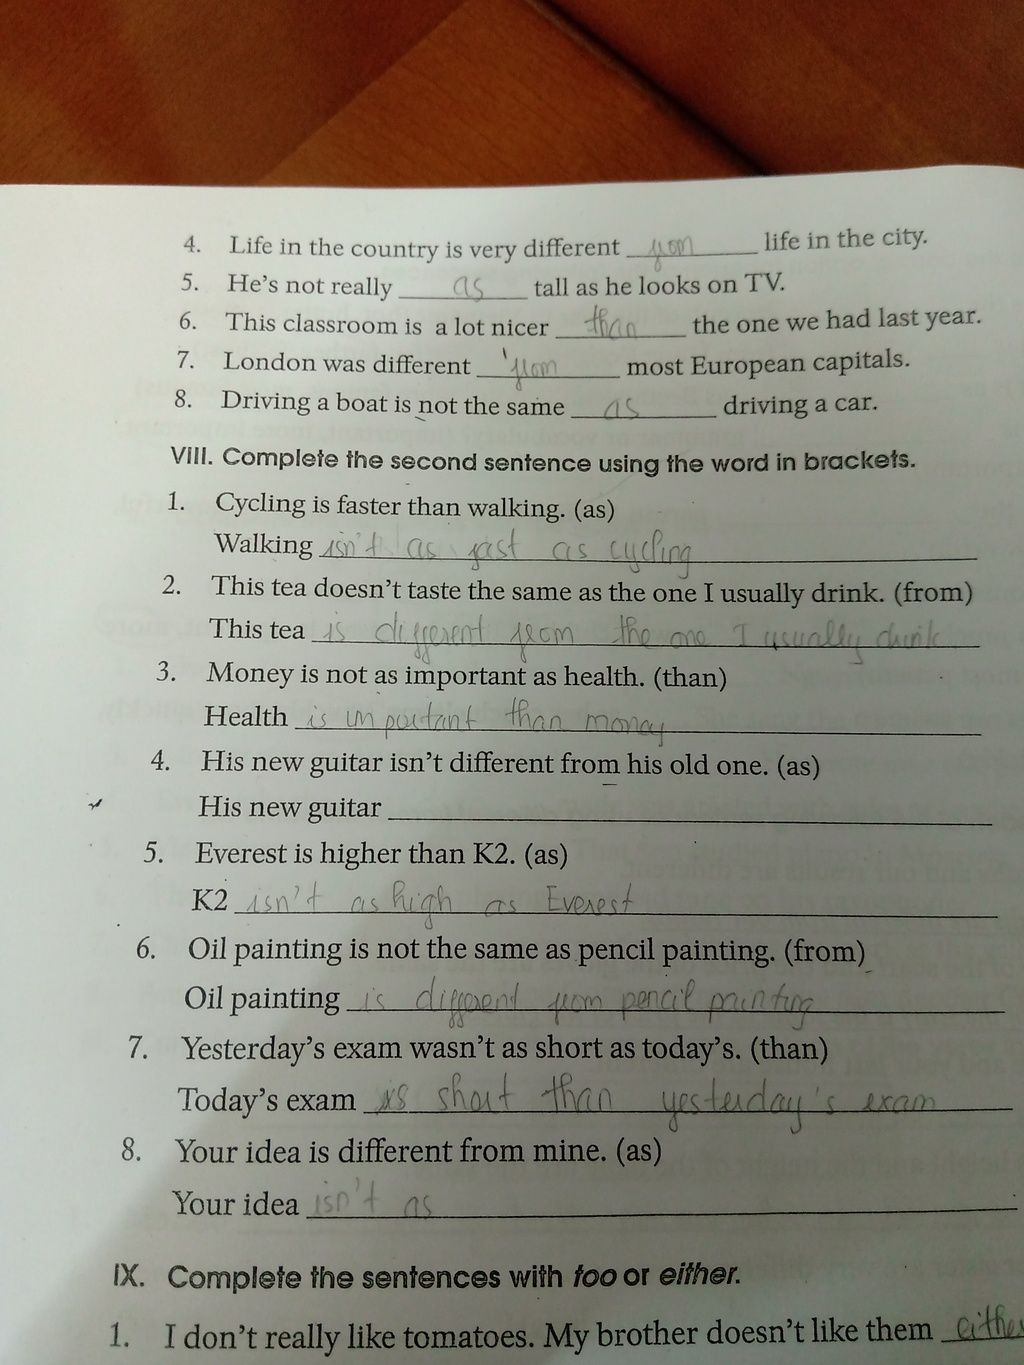 4. Life in the country is very different from life in the city.
5. He's not really as tall as he looks on TV.
6. This classroom is a lot nicer than the one we had last year.
7. London was different from most European capitals.
8. Driving a boat is not the same as driving a car.
VIII. Complete the second sentence using the word in brackets.
1. Cycling is faster than walking. (as)
Walking isn't as fast as cycling
2. This tea doesn't taste the same as the one I usually drink. (from)
This tea is different from the one I usually drink
3. Money is not as important as health. (than)
Health is important than money
4. His new guitar isn't different from his old one. (as)
His new guitar
5. Everest is higher than K2. (as)
K2 isn't as high as Everest
6. Oil painting is not the same as pencil painting. (from)
Oil painting is different from pencil painting
7. Yesterday's exam wasn't as short as today's. (than)
Today's exam is short than yesterday's exam
8. Your idea is different from mine. (as)
Your idea isn't as
IX. Complete the sentences with too or either.
1. I don't really like tomatoes. My brother doesn't like them either